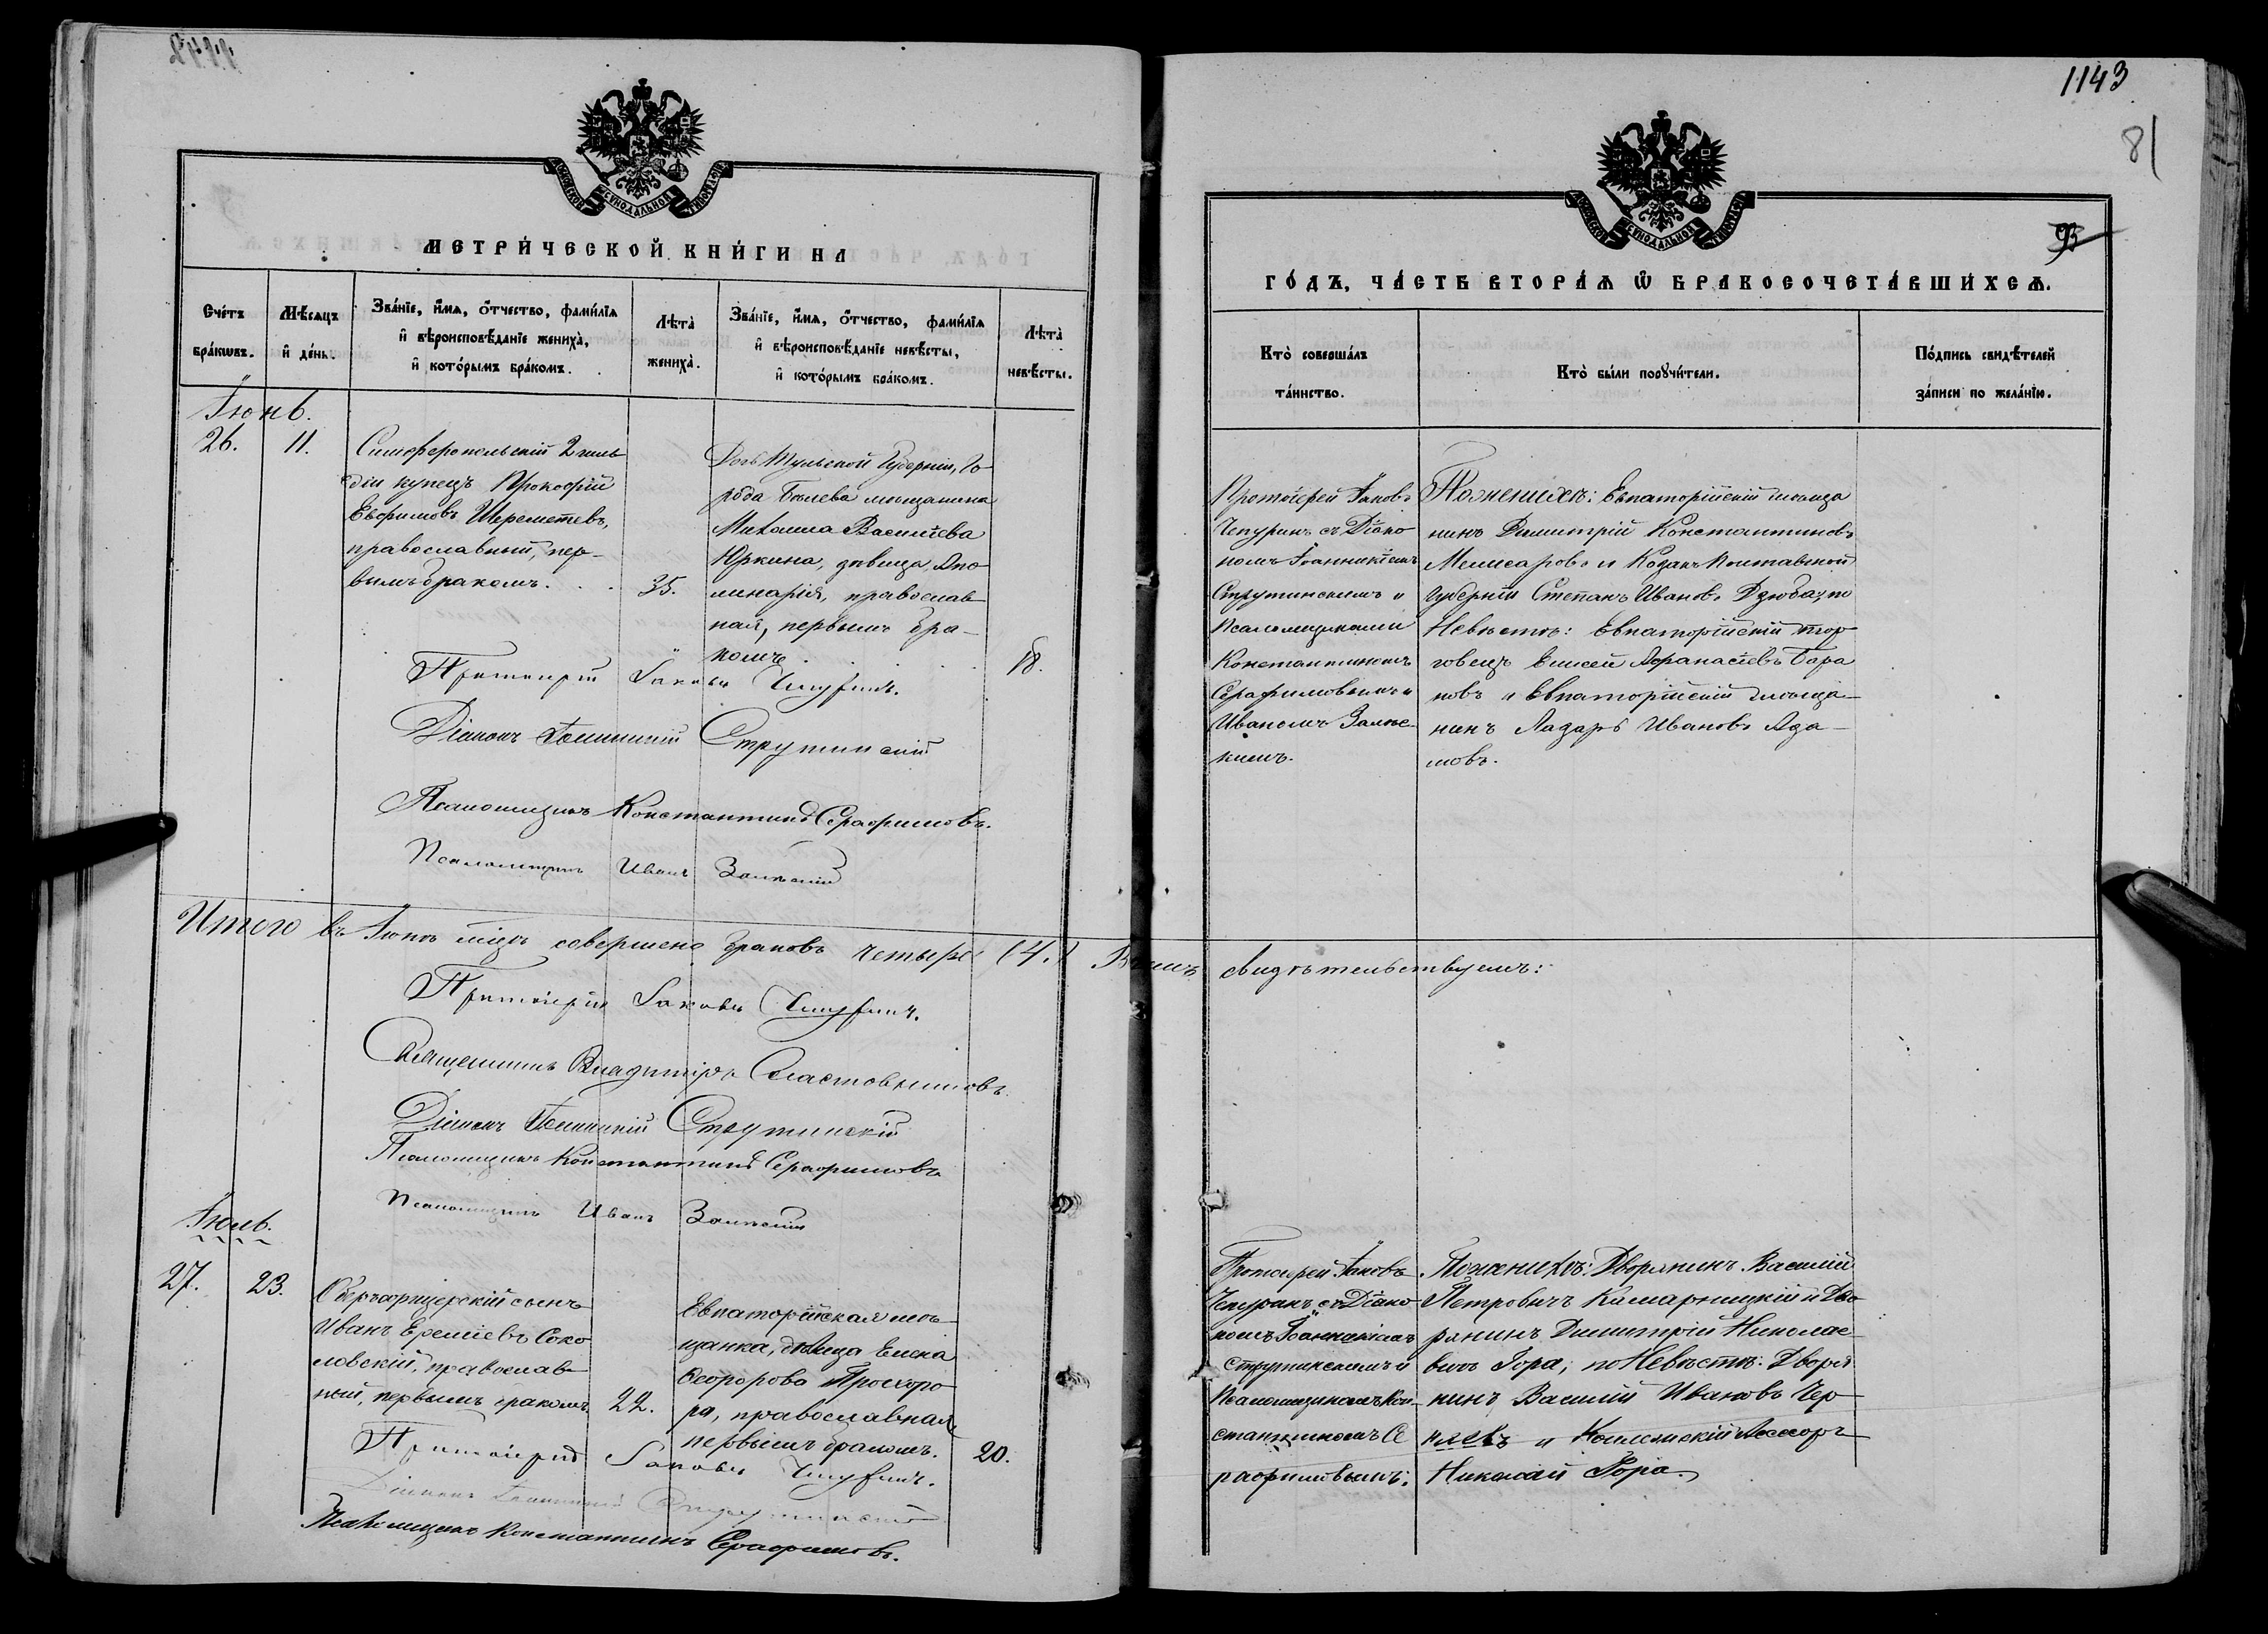 1143
81
93
МЕТРИ́ЧЕСКОЙ КНИ́ГИ НА
Сче́тъ бра́кѡвъ.
Мѣ́сяцъ и҆ де́нь.
Зва́нїе, и҆́мѧ, ѻ҆́тчество, фами́лїѧ и҆ вѣроисповѣ́данїе жениха̀, и҆ кото́рымъ бра́комъ.
Лѣта̀ жениха̀.
Зва́нїе, и҆́мѧ, ѻ҆́тчество, фами́лїѧ и҆ вѣроисповѣ́данїе невѣ́сты, и҆ кото́рымъ бра́комъ.
Лѣта̀ невѣ́сты.
Іюнь.
26.
11.
Симферопольскій 2 гиль
діи купецъ Прокофій
Евфимовъ Шереметевъ,
православный, пер-
вымъ бракомъ.
35.
Дочь Тульской Губерніи, Го
рода Бѣлева мѣщанина
Михаила Василіева
Юркина, дѣвица Апо
линарія, православ
ная, первымъ бра-
комъ.
18.
Протоіерей Іаковъ Чепуринъ.
Діаконъ Іоанникій Струтинскій
Псаломщикъ Константинъ Серафимовъ.
Псаломщикъ Иванъ
Итого въ Іюнѣ мцѣ совершено браковъ четыре (4.)
Протоіерей Іаковъ Чепуринъ.
Священникъ Владиміръ Сластовниковъ
Діаконъ Іоанникій Струтинскій
Псаломщикъ Константинъ Серафимовъ
Псаломщикъ Иванъ
Іюль.
27.
23.
Оберъ офицерскій сынъ
Иванъ Ереміевъ Соко
ловскій, православ
ный, первымъ бракомъ.
22.
Евпаторійская мѣ-
щанка, дѣвица Елена
Ѳеодорова Прохоро
ва, православная
первымъ бракомъ.
20.
Протоіерей Іаковъ Чепуринъ.
Діаконъ Іоанникій Струтинскій
Псаломщикъ Константинъ Серафимовъ.
ГО́ДЪ, ЧА́СТЬ ВТОРА́Ѧ Ѡ҆ БРАКОСОЧЕТА́ВШИХСѦ.
Кто̀ соверша́лъ та́инство.
Кто̀ бы́ли порꙋчи́тели.
По́дпись свидѣ́телей за́писи по жела́нїю.
Протоіерей Іаковъ
Чепуринъ съ Діако
номъ Іоанникіемъ
Струтинскимъ и
Псаломщиками
Константиномъ
Серафимовымъ и
Иваномъ
По женихѣ: Евпаторійскій мѣща
нинъ Димитрій Константиновъ
Мелисаровъ и Козакъ Полтавской
Губерніи Степанъ Ивановъ Дзюба; по
Невѣстѣ: Евпаторійскій тор
говецъ Елисей Афанасіевъ Бара
новъ и Евпаторійскій мѣща-
нинъ Лазарь Ивановъ Ада-
мовъ.
свидѣтельствуемъ:
Протоіерей Іаковъ
Чепуринъ съ Діако
номъ Іоанникіемъ
Струтинскимъ и
Псаломщикомъ Кон
стантиномъ Се
рафимовымъ.
По женихѣ: Дворянинъ Василій
Петровичъ Камарницкій и Дво
рянинъ Димитрій Николае
вичъ Гора; по Невѣстѣ: Дворя
нинъ Василій Ивановъ Чер
няевъ и Колежскій Ассесоръ
Николай Гора.